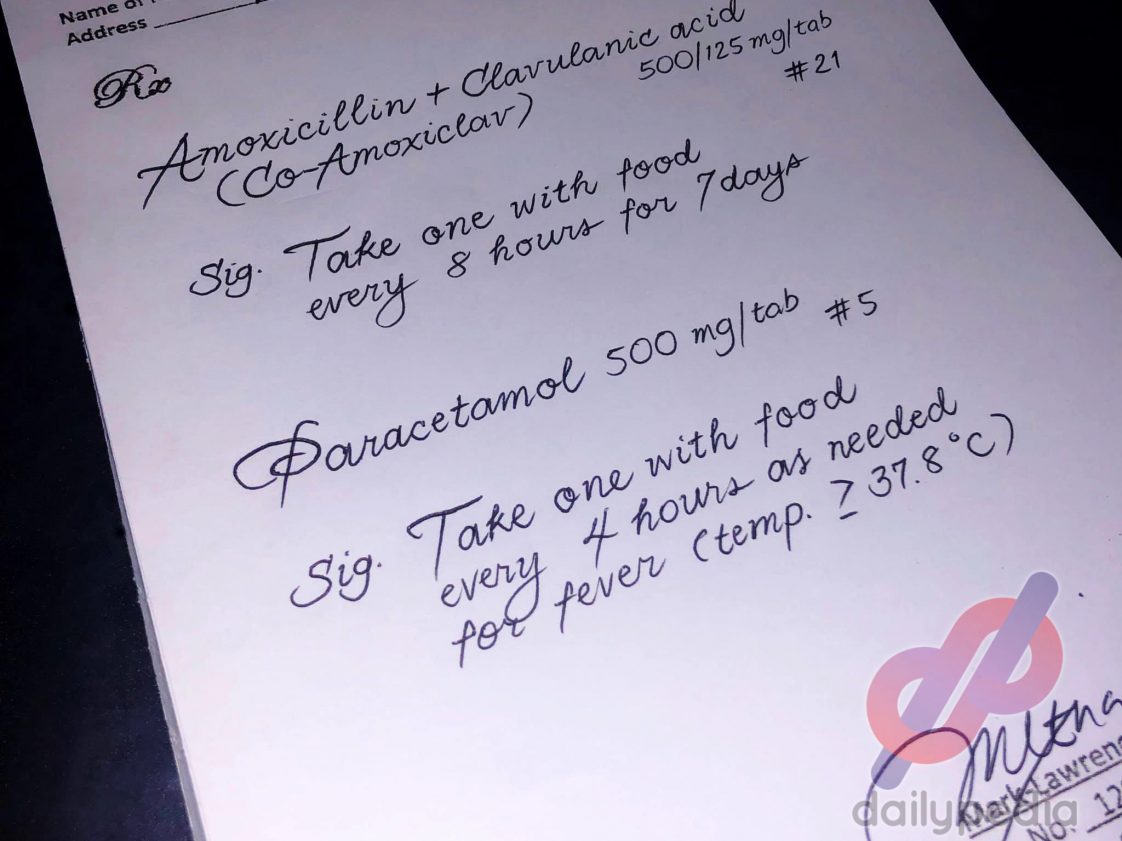 Name of
Address
Rx
Amoxicillin + Clavulanic acid
500/125 mg/tab
(Co-Amoxiclav)
#21
Sig. Take one with food
every 8 hours for 7 days
Paracetamol 500 mg/tab #5
Sig. Take one with food
every 4 hours as needed
for fever (temp. ≥ 37.8°C)
Mark-Lawrenc
No. 12
dailypedia